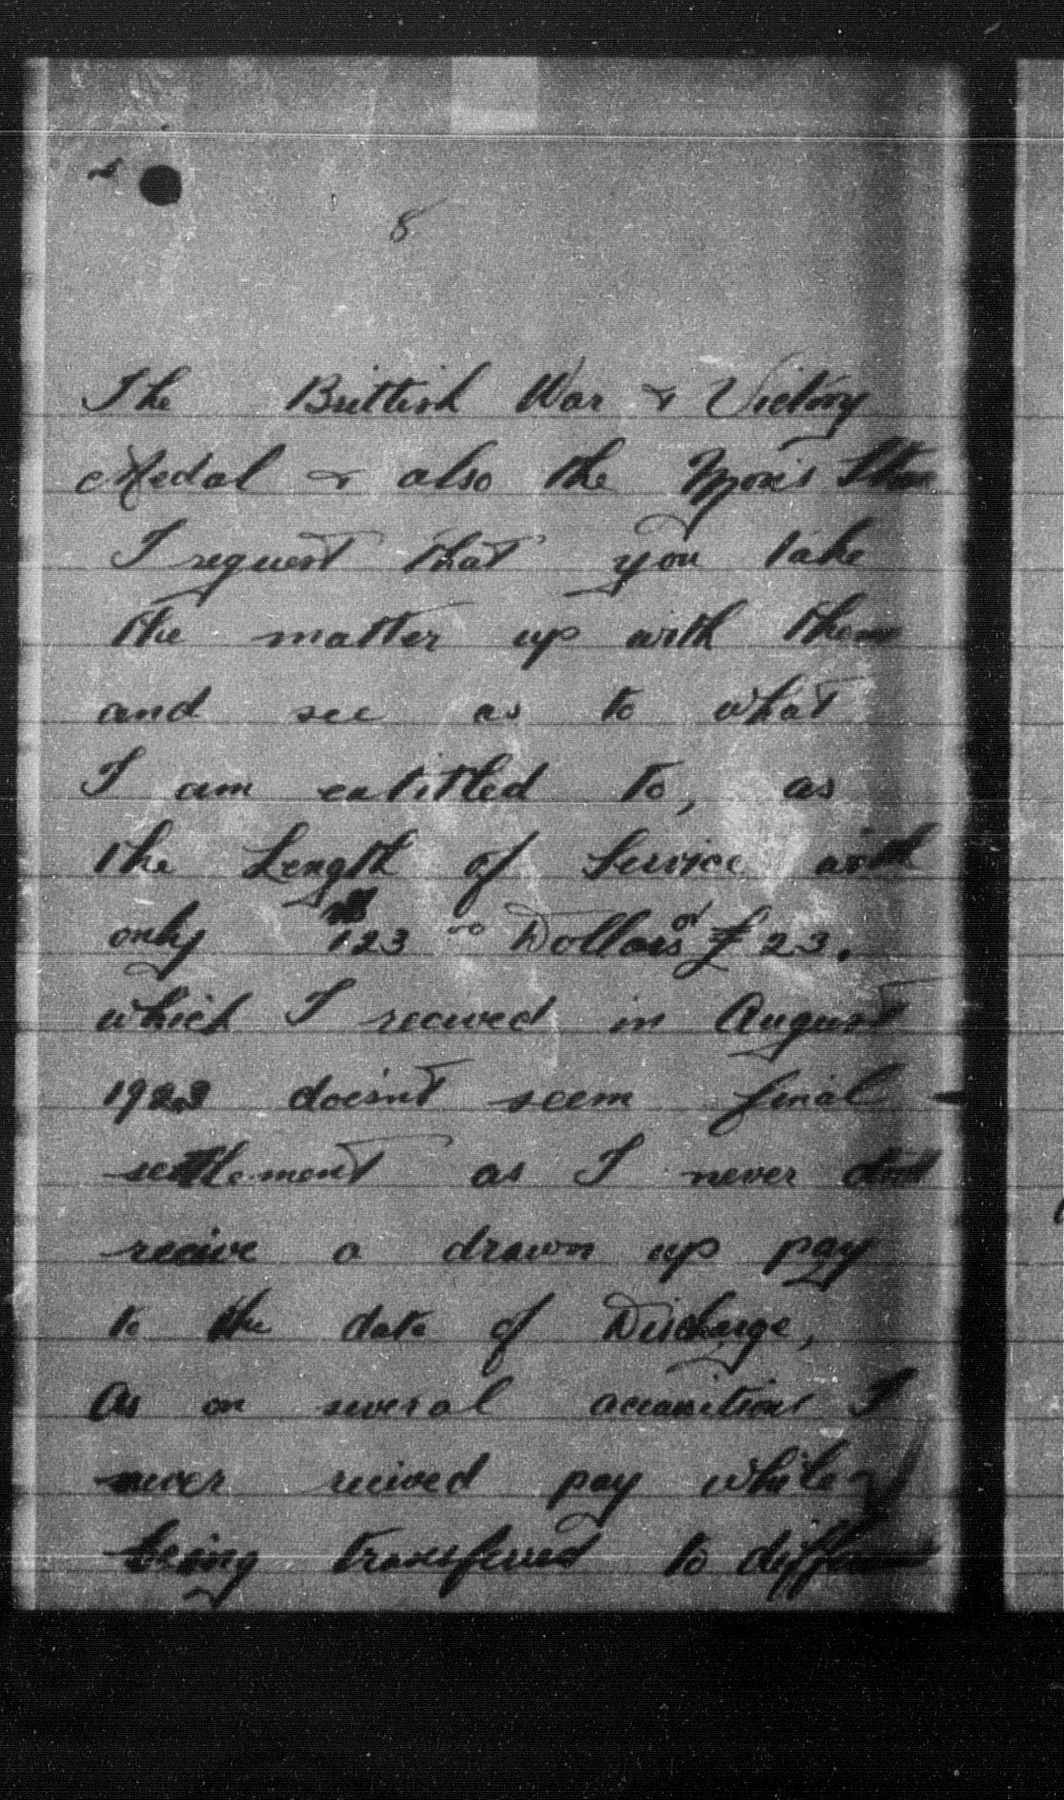 8
The Brittish War & Victory
Medal & also the Mons Star
I request that you take
the matter up with them
and see as to what
I am entitled to, as
the Length of Service with
only 123 00 Dollars or £23.
which I recived in August
1923 doesnt seem final
settlement as I never did
recive a drawn up pay
to the date of Discharge,
As on several accasitions I
never recived pay while
being transferred to different